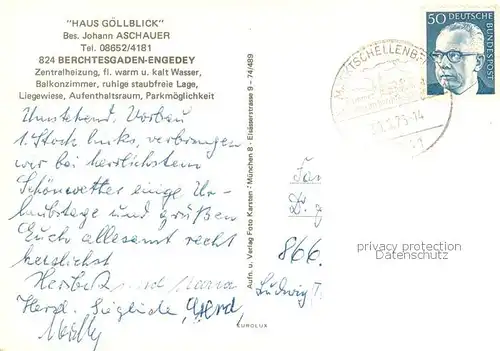 "HAUS GÖLLBLICK"
Bes. Johann ASCHAUER
Tel. 08652/4181
824 BERCHTESGADEN-ENGEDEY
Zentralheizung, fl. warm u. kalt Wasser,
Balkonzimmer, ruhige staubfreie Lage,
Liegewiese, Aufenthaltsraum, Parkmöglichkeit
Umstehend, Vorbau
1. Stock links, verbringen
wir bei herrlichstem
Schönwetter einige Ur-
laubstage und grüßen
Euch allesamt recht
herzlichst
Herbert und
Sieglinde, Gerd,
Willy
Aufn. u. Verlag Foto Karsten · München 8 · Elsässerstrasse 9 - 74/489
EUROLUX
50 DEUTSCHE
BUNDESPOST
MARKTSCHELLENBERG
75-14
Fam
866
Ludwig
privacy protection
Datenschutz